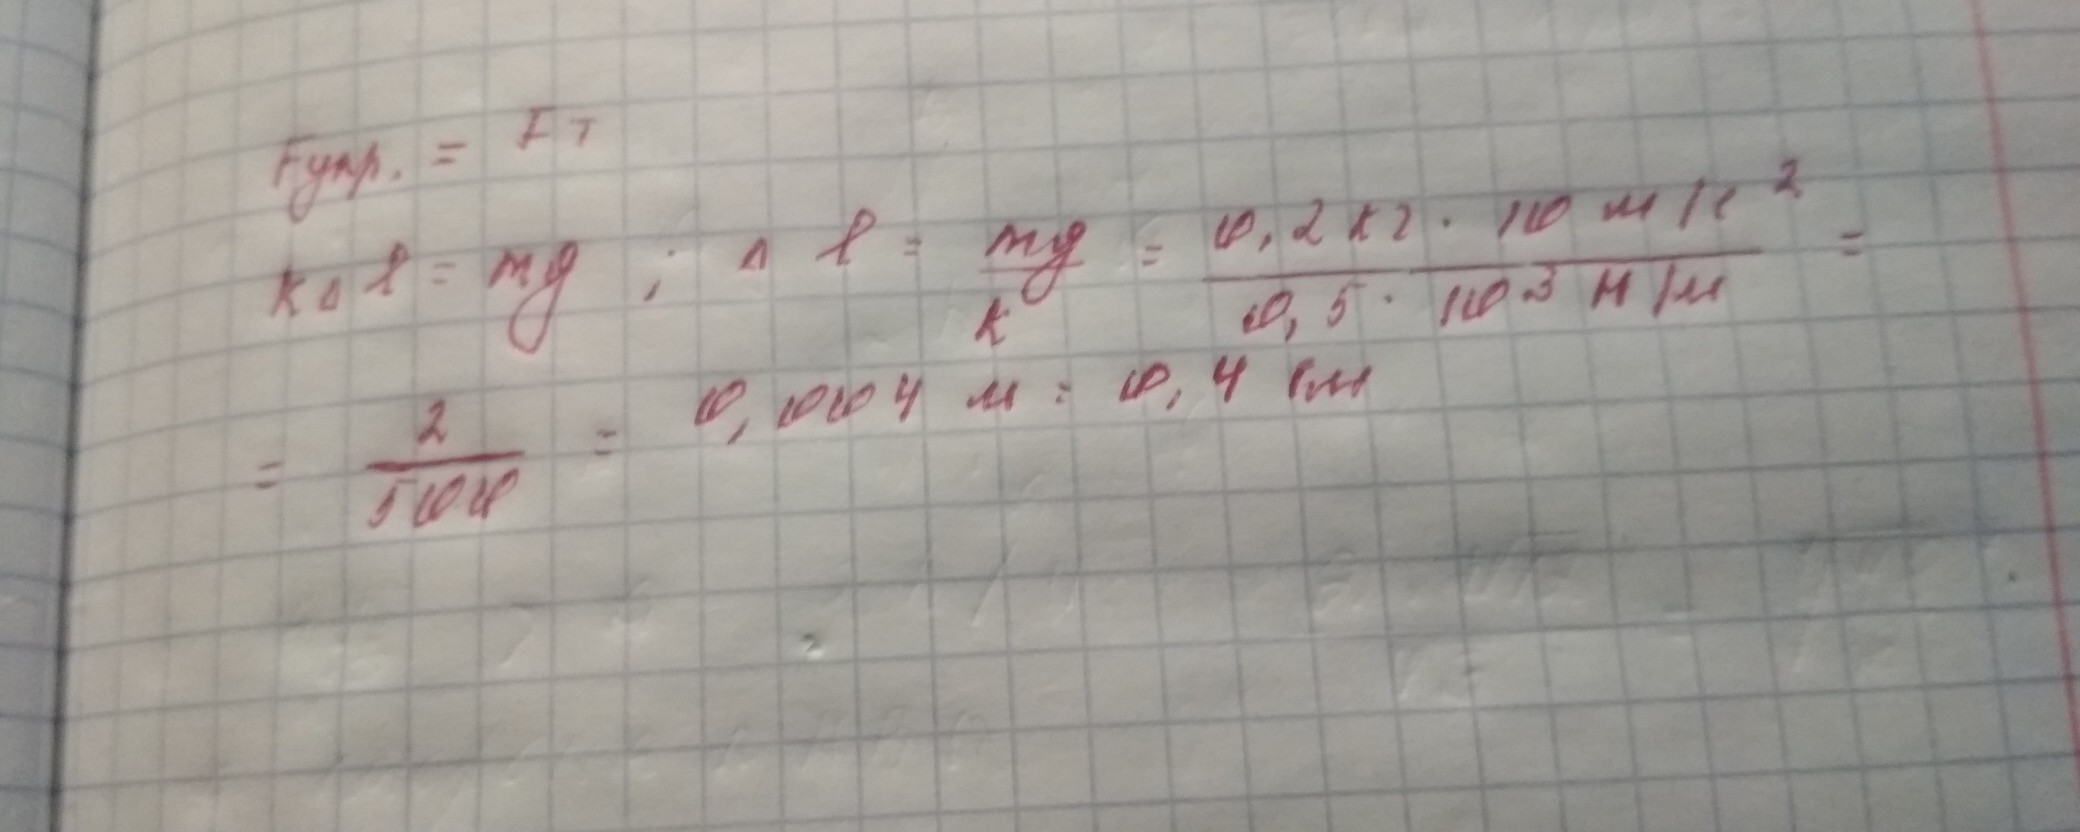 Fупр. = Fт
kΔl = mg ; Δl = mg/k = 0,2 кг · 10 м/с² / 0,5 · 10³ Н/м =
= 2/500 = 0,004 м = 0,4 см